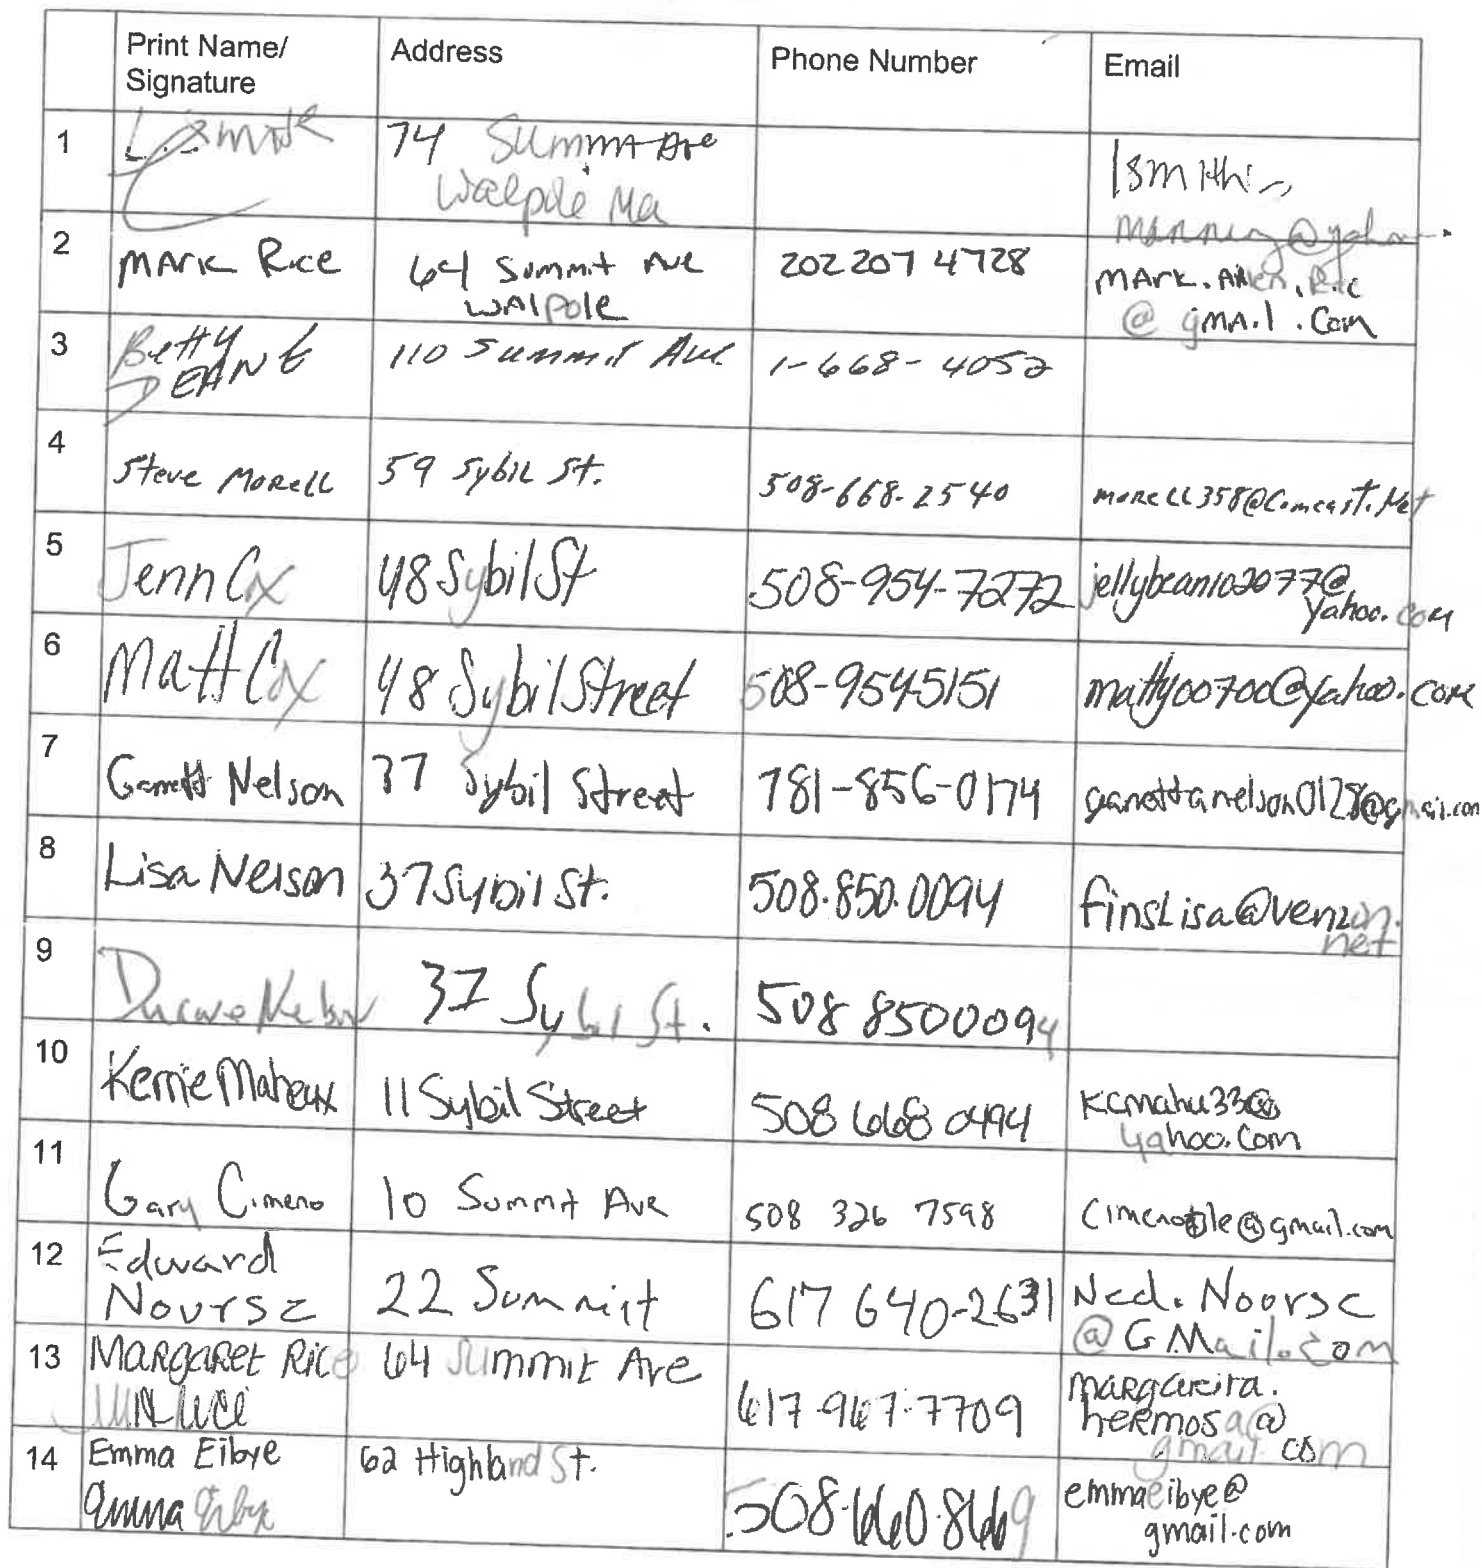 Print Name/
Signature
Address
Phone Number
Email
1
74 Summit Ave
Walpole Ma
2
MARK Rice
64 Summit Ave
WAlpole
202 207 4728
MArk.Allen.Rice
@gMAil.Com
3
Betty
DEANE
110 Summit Ave
1-668-4052
4
Steve Morell
59 Sybil St.
508-668-2540
morell358@Comcast.Net
5
Jenn Cox
48 Sybil St
508-954-7272
jellybean102077@
yahoo.com
6
Matt Cox
48 Sybil Street
508-9545151
matty00700@yahoo.com
7
Garrett Nelson
37 Sybil Street
781-856-0174
garrettanelson0128@gmail.com
8
Lisa Nelson
37 Sybil St.
508.850.0094
finsLisa@verizon.
net
9
37 Sybil St.
508 8500094
10
Kerrie Maheux
11 Sybil Street
508 668 0494
kcmahu33@
yahoo.com
11
Gary Cimeno
10 Summit Ave
508 326 7598
cimenotile@gmail.com
12
Edward
Nourse
22 Summit
617 640-2631
Ned.Noorse
@GMail.com
13
MARGARET Rice
64 Summit Ave
617-967-7709
margarita.
hermosa@
gmail com
14
Emma Eibye
Emma Eibye
62 Highland St.
508-660-8669
emmaeibye@
gmail.com